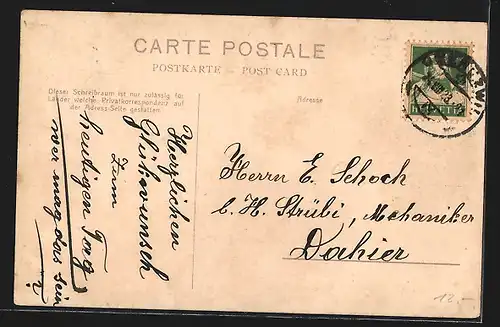 CARTE POSTALE
POSTKARTE – POST CARD
Dieser Schreibraum ist nur zulässig für
Länder welche Privatkorrespondenz auf
der Adress-Seite gestatten.
Adresse
Herzlichen
Glückwunsch
zum
heutigen Tag
wer mag das sein
?
Herrn E. Schoch
b. H. Strübi, Mechaniker
Dahier
12.-